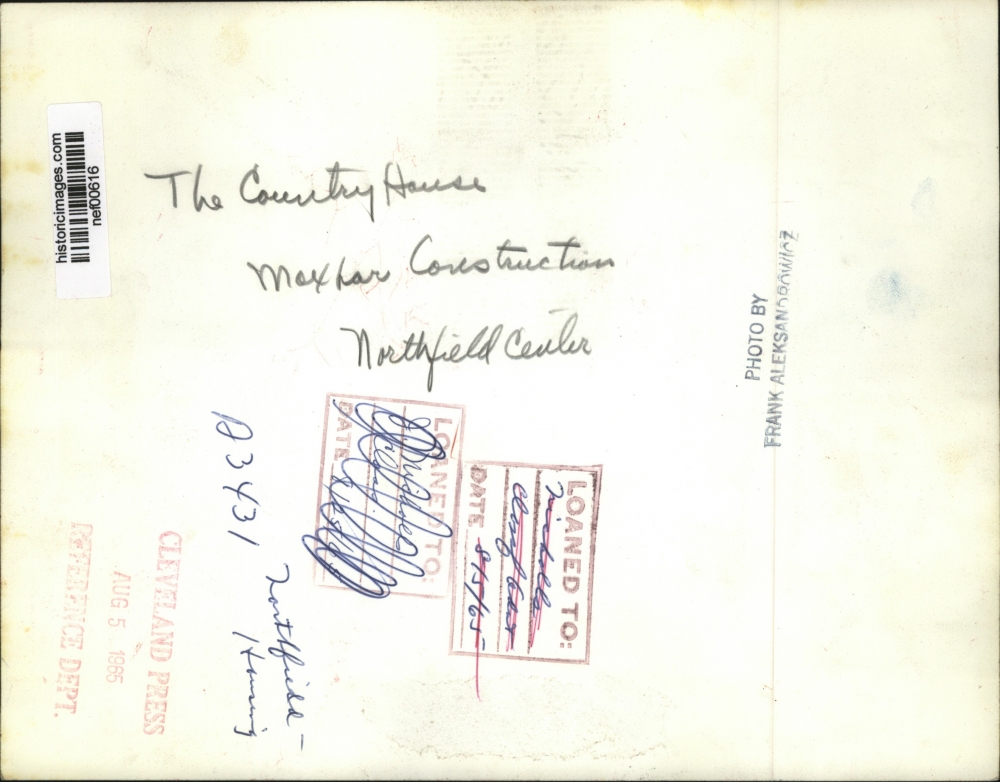 historicimages.com
nef00616
The Country House
Maxhar Construction
Northfield Center
PHOTO BY
FRANK ALEKSANDROWICZ
LOANED TO:
DATE
LOANED TO:
Nicholls
DATE 8/5/65
A3431
Northfield -
Housing
CLEVELAND PRESS
AUG 5 1965
REFERENCE DEPT.